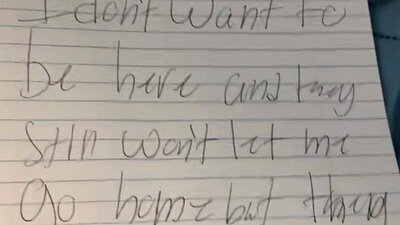 I don't want to
be here and they
still won't let me
go home but they